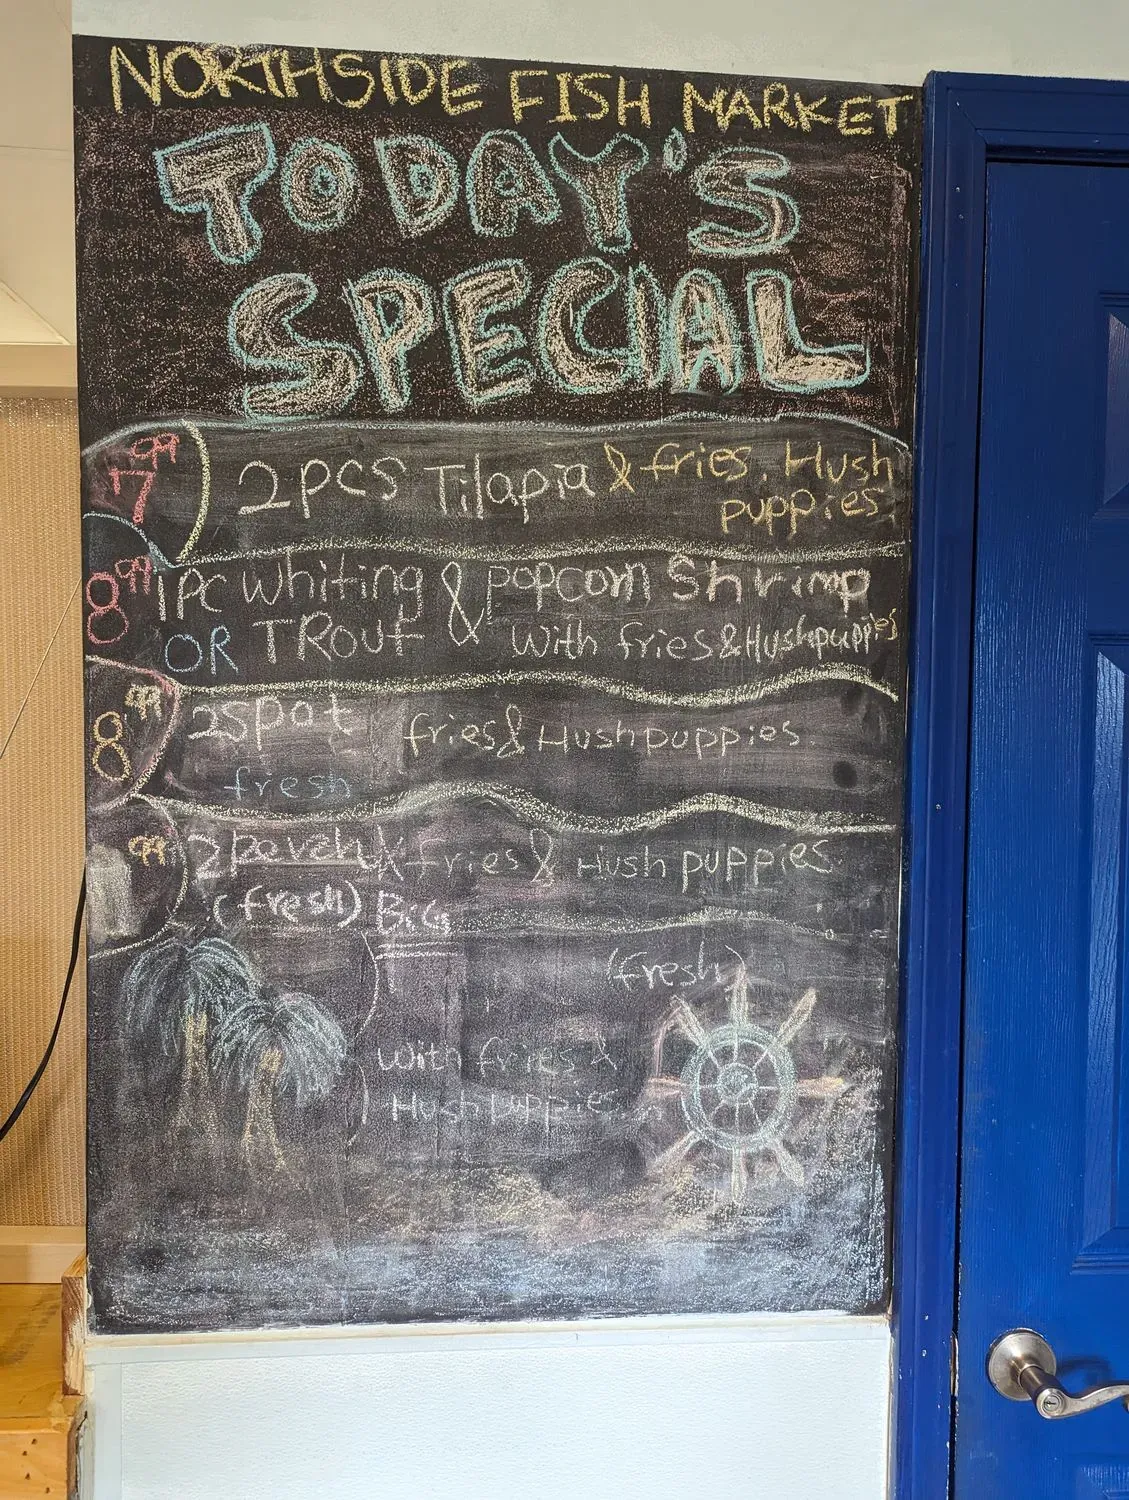 NORTHSIDE FISH MARKET
TODAY'S
SPECIAL
7.99 2 PCS Tilapia & fries, Hush
puppies
8.99 1 PC Whiting & popcorn Shrimp
OR TROUT With fries & Hushpuppies
8.99 2 Spot fries & Hushpuppies
fresh
99 2 perch fries & Hush puppies
(fresh) BIG
(fresh)
With fries &
Hushpuppies